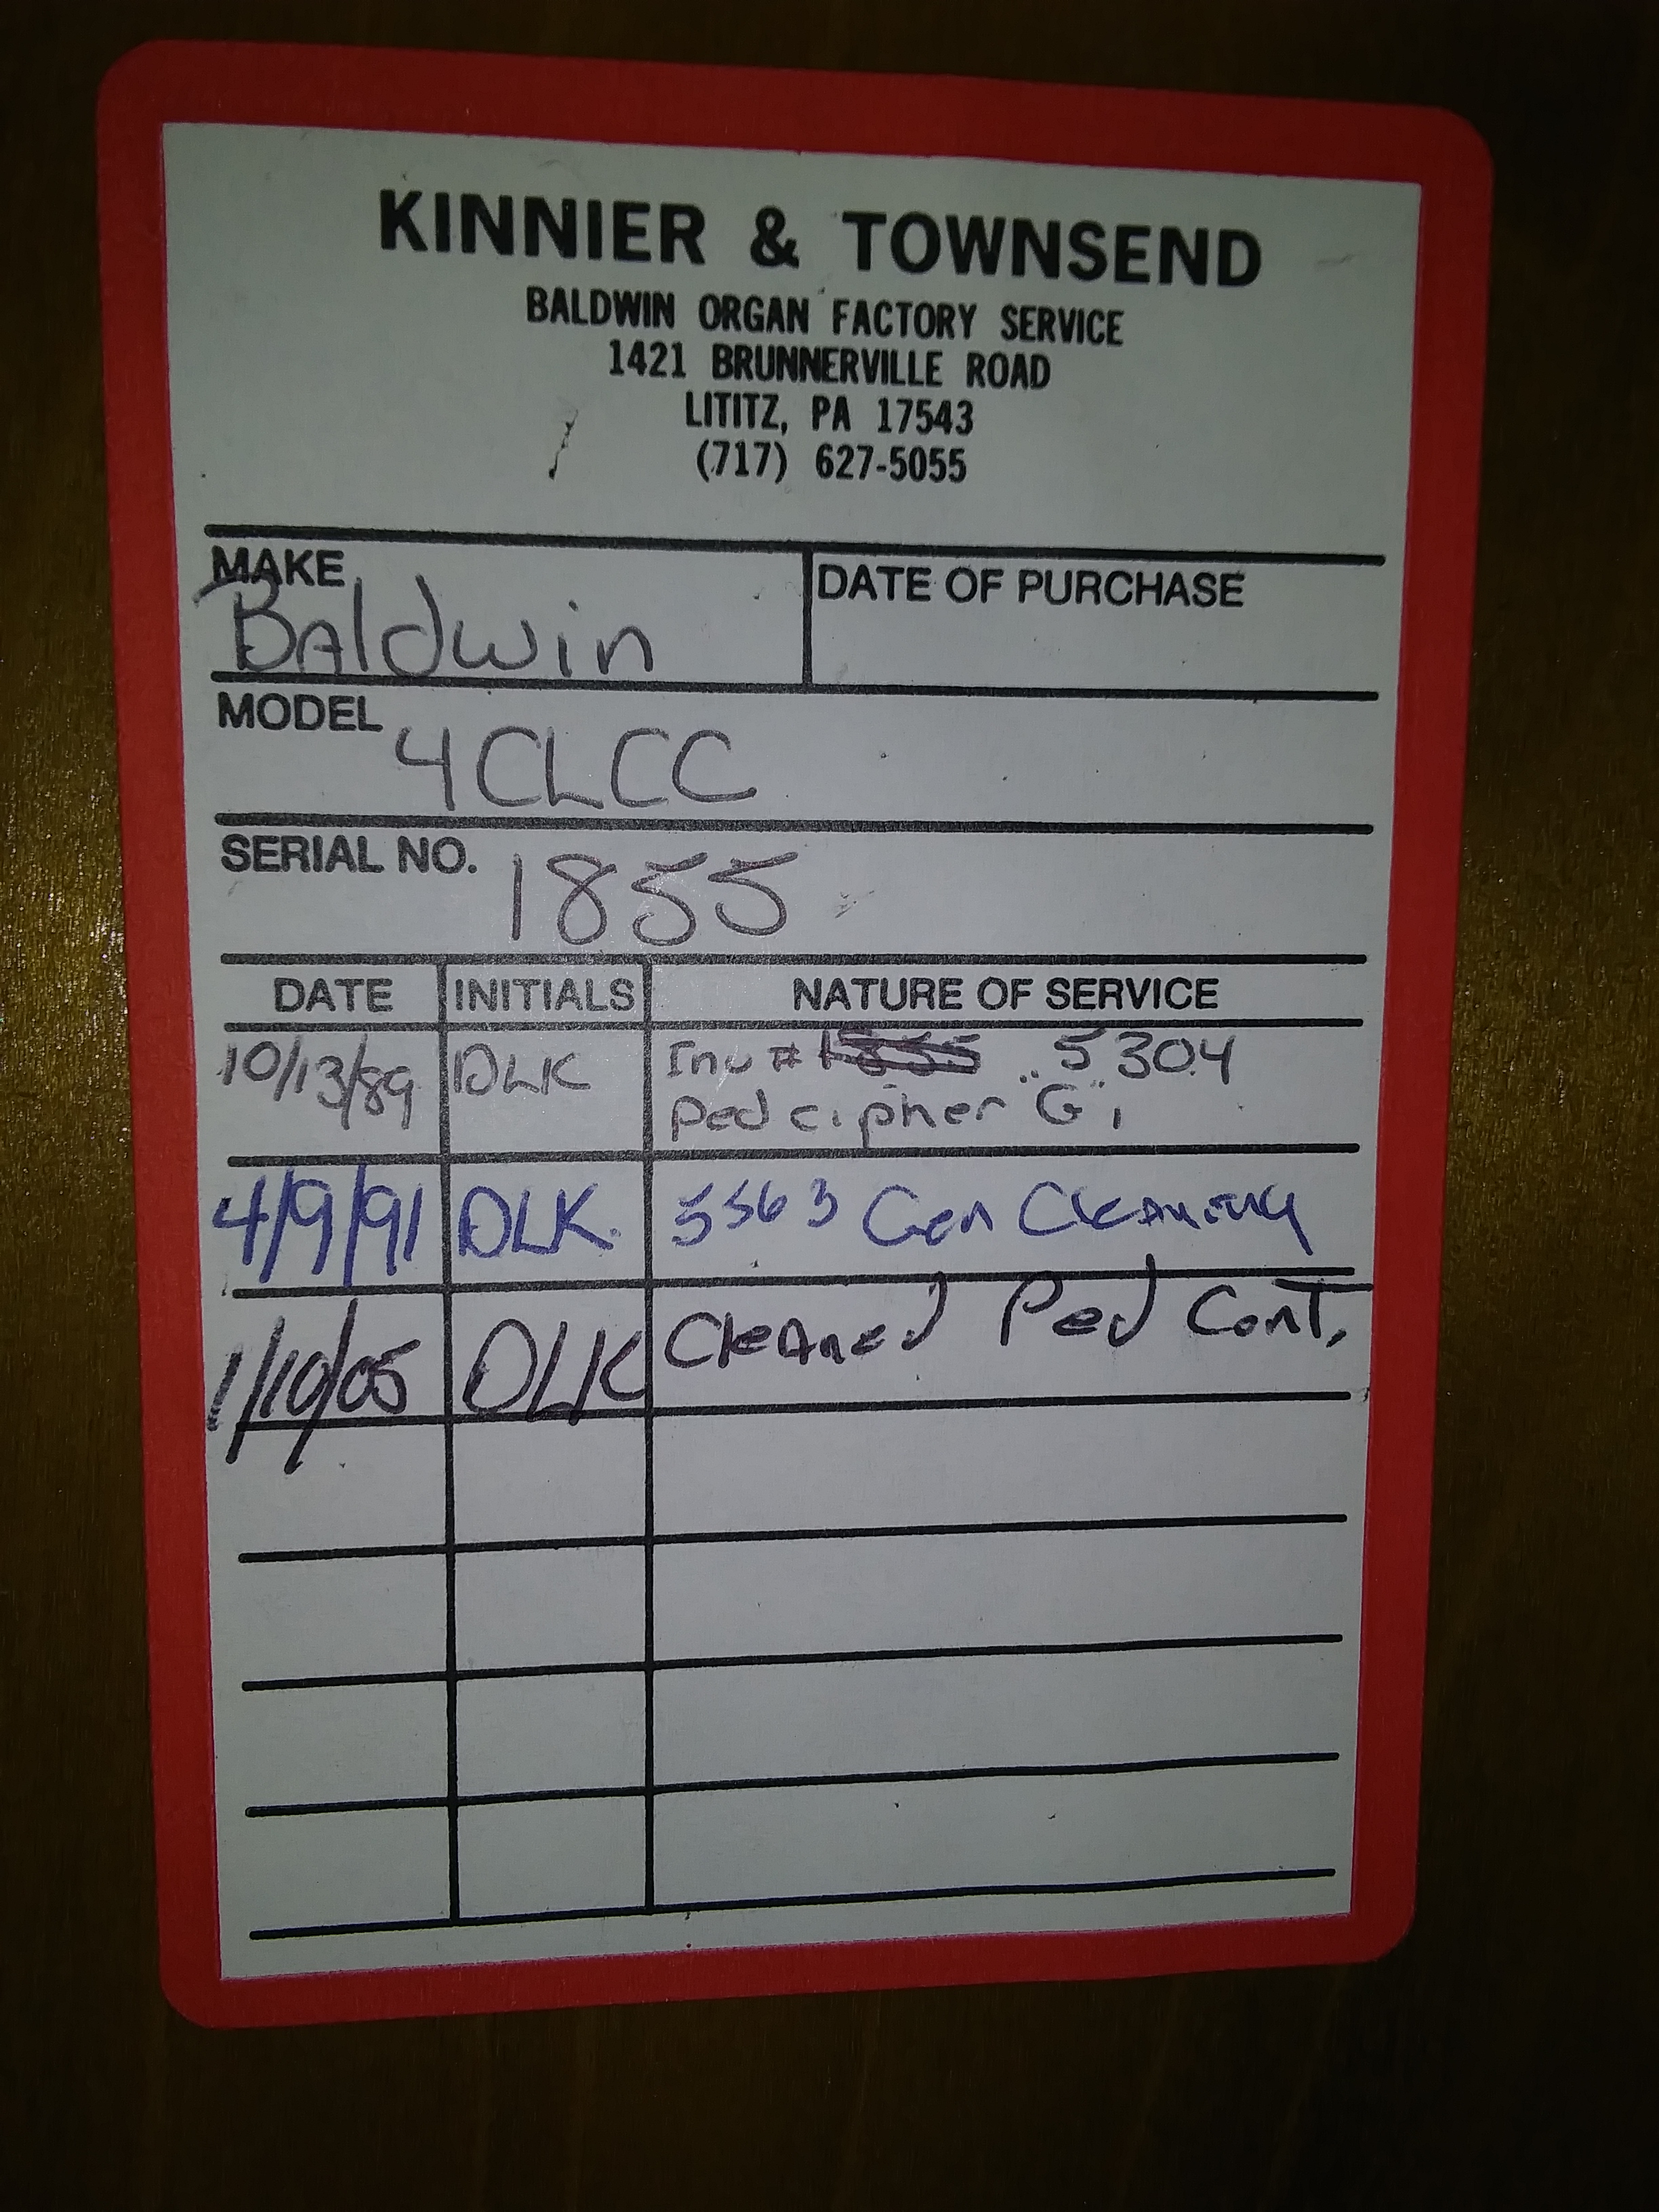 KINNIER & TOWNSEND
BALDWIN ORGAN FACTORY SERVICE
1421 BRUNNERVILLE ROAD
LITITZ, PA 17543
(717) 627-5055
MAKE DATE OF PURCHASE
Baldwin
MODEL 4CLCC
SERIAL NO. 1855
DATE INITIALS NATURE OF SERVICE
10/13/89 DLK Inv # 1855 5304
Ped cipher "G",
4/9/91 DLK. 5563 Gen Cleaning
1/10/05 DLK Cleaned Ped Cont.